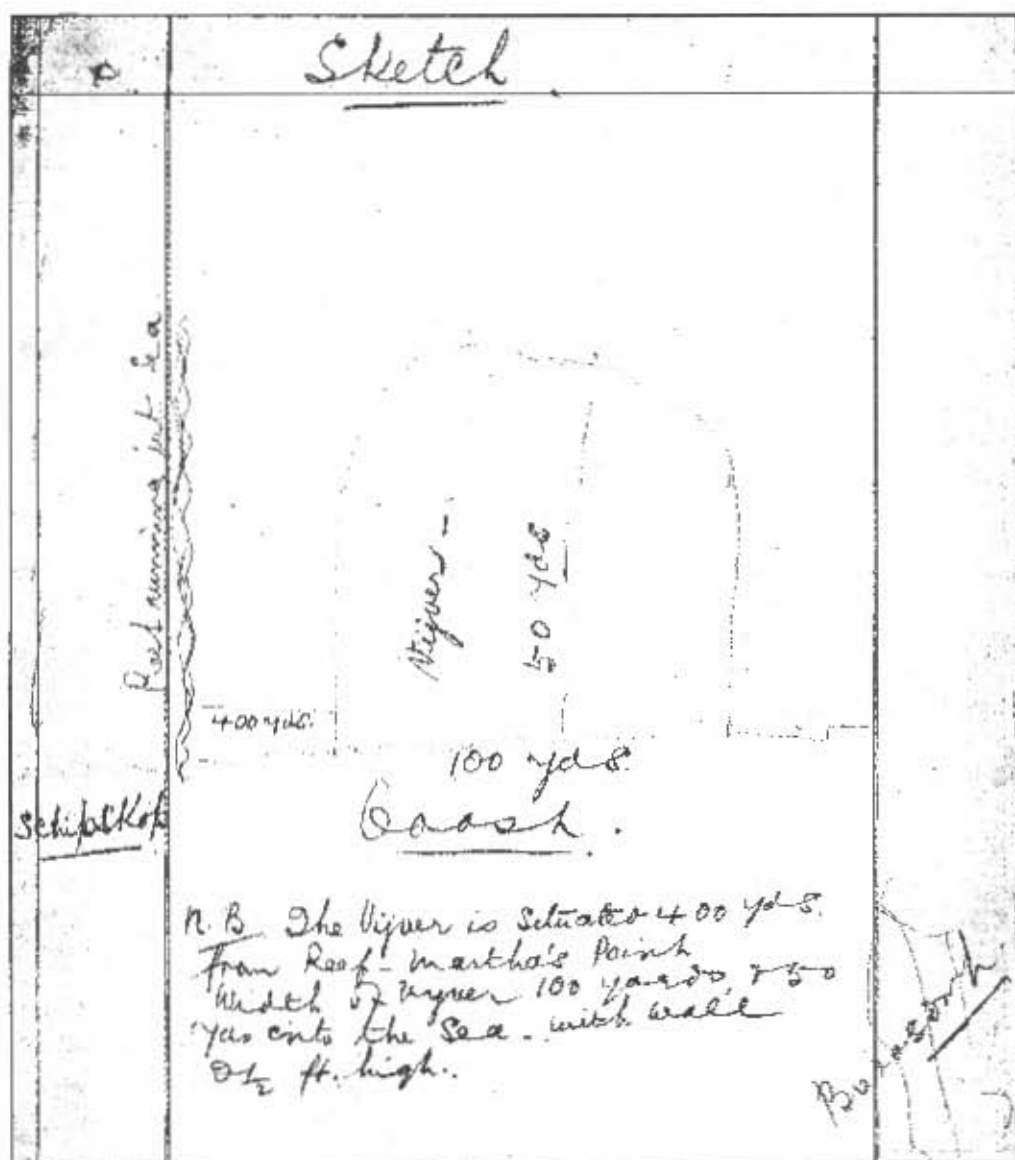 Sketch.
Reef running int Sea
Vijver -
50 yds
400 yds.
100 yds
Schipskop
Coast.
N. B. The Vijver is Situated 400 yds.
From Reef - Martha's Point
Width of Vijver 100 yards, & 50
yds into the Sea - with wall
2½ ft. high.